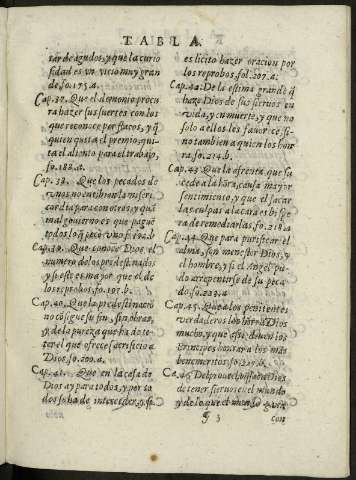 TABLA
sar de agudos, y que la curio
sidad es vn vicio muy gran
de. fo. 175. a.
Cap. 37. Que el demonio procu
ra hazer sus suertes con los
que reconoce por flacos, y q̃
quien quita el premio, qui-
ta el aliento para el trabajo,
fo. 188. a.
Cap. 38. Que los pecados de
vnos no entibian la miseri
cordia para con otros, y que
mal govierno es que pague
todos lo q̃ pecò vno
Cap. 39. Que conoce Dios el
numero de los predestinados
y si este es mayor que el de
los reprobos. fo. 197. b.
Cap. 40. Que la predestinaciõ
no cõsigue su fin, sin obras,
y de la pureza que ha de te-
ner el que ofrece sacrificio a
Dios. fo. 200. a.
Cap. 41. Que en la casa de
Dios ay para todos, y por to
dos se ha de interceder, y si
es licito hazer oracion por
los reprobos. fol. 207. a.
Cap. 42. De la estima grande q̃
haze Dios de sus sieruos en
vida, y en muerte, y que no
solo a ellos les fauorece, si-
no tambien a quien los hon
ra. fo. 214. b.
Cap. 43. Que la afrenta que su
cede a la hõra, causa mayor
sentimiento, y que el sacar
las culpas a la cara es bispe
ra de remediarlas. fo. 218. a.
Cap. 44. Que para purificar el
alma, son menester Dios, y
el hombre, y si el Angel pu-
do arrepentirse de su peca
do. fo. 223. a.
Cap. 45. Que a los penitentes
verdaderos los honra Dios
mucho, y que assi deuen los
Principes honrar a los mas
benemeritos. fo.
Cap. 46. Del prouecho
de tener sieruos el mundo
y de lo que el mundo gusta
¶ 3 con